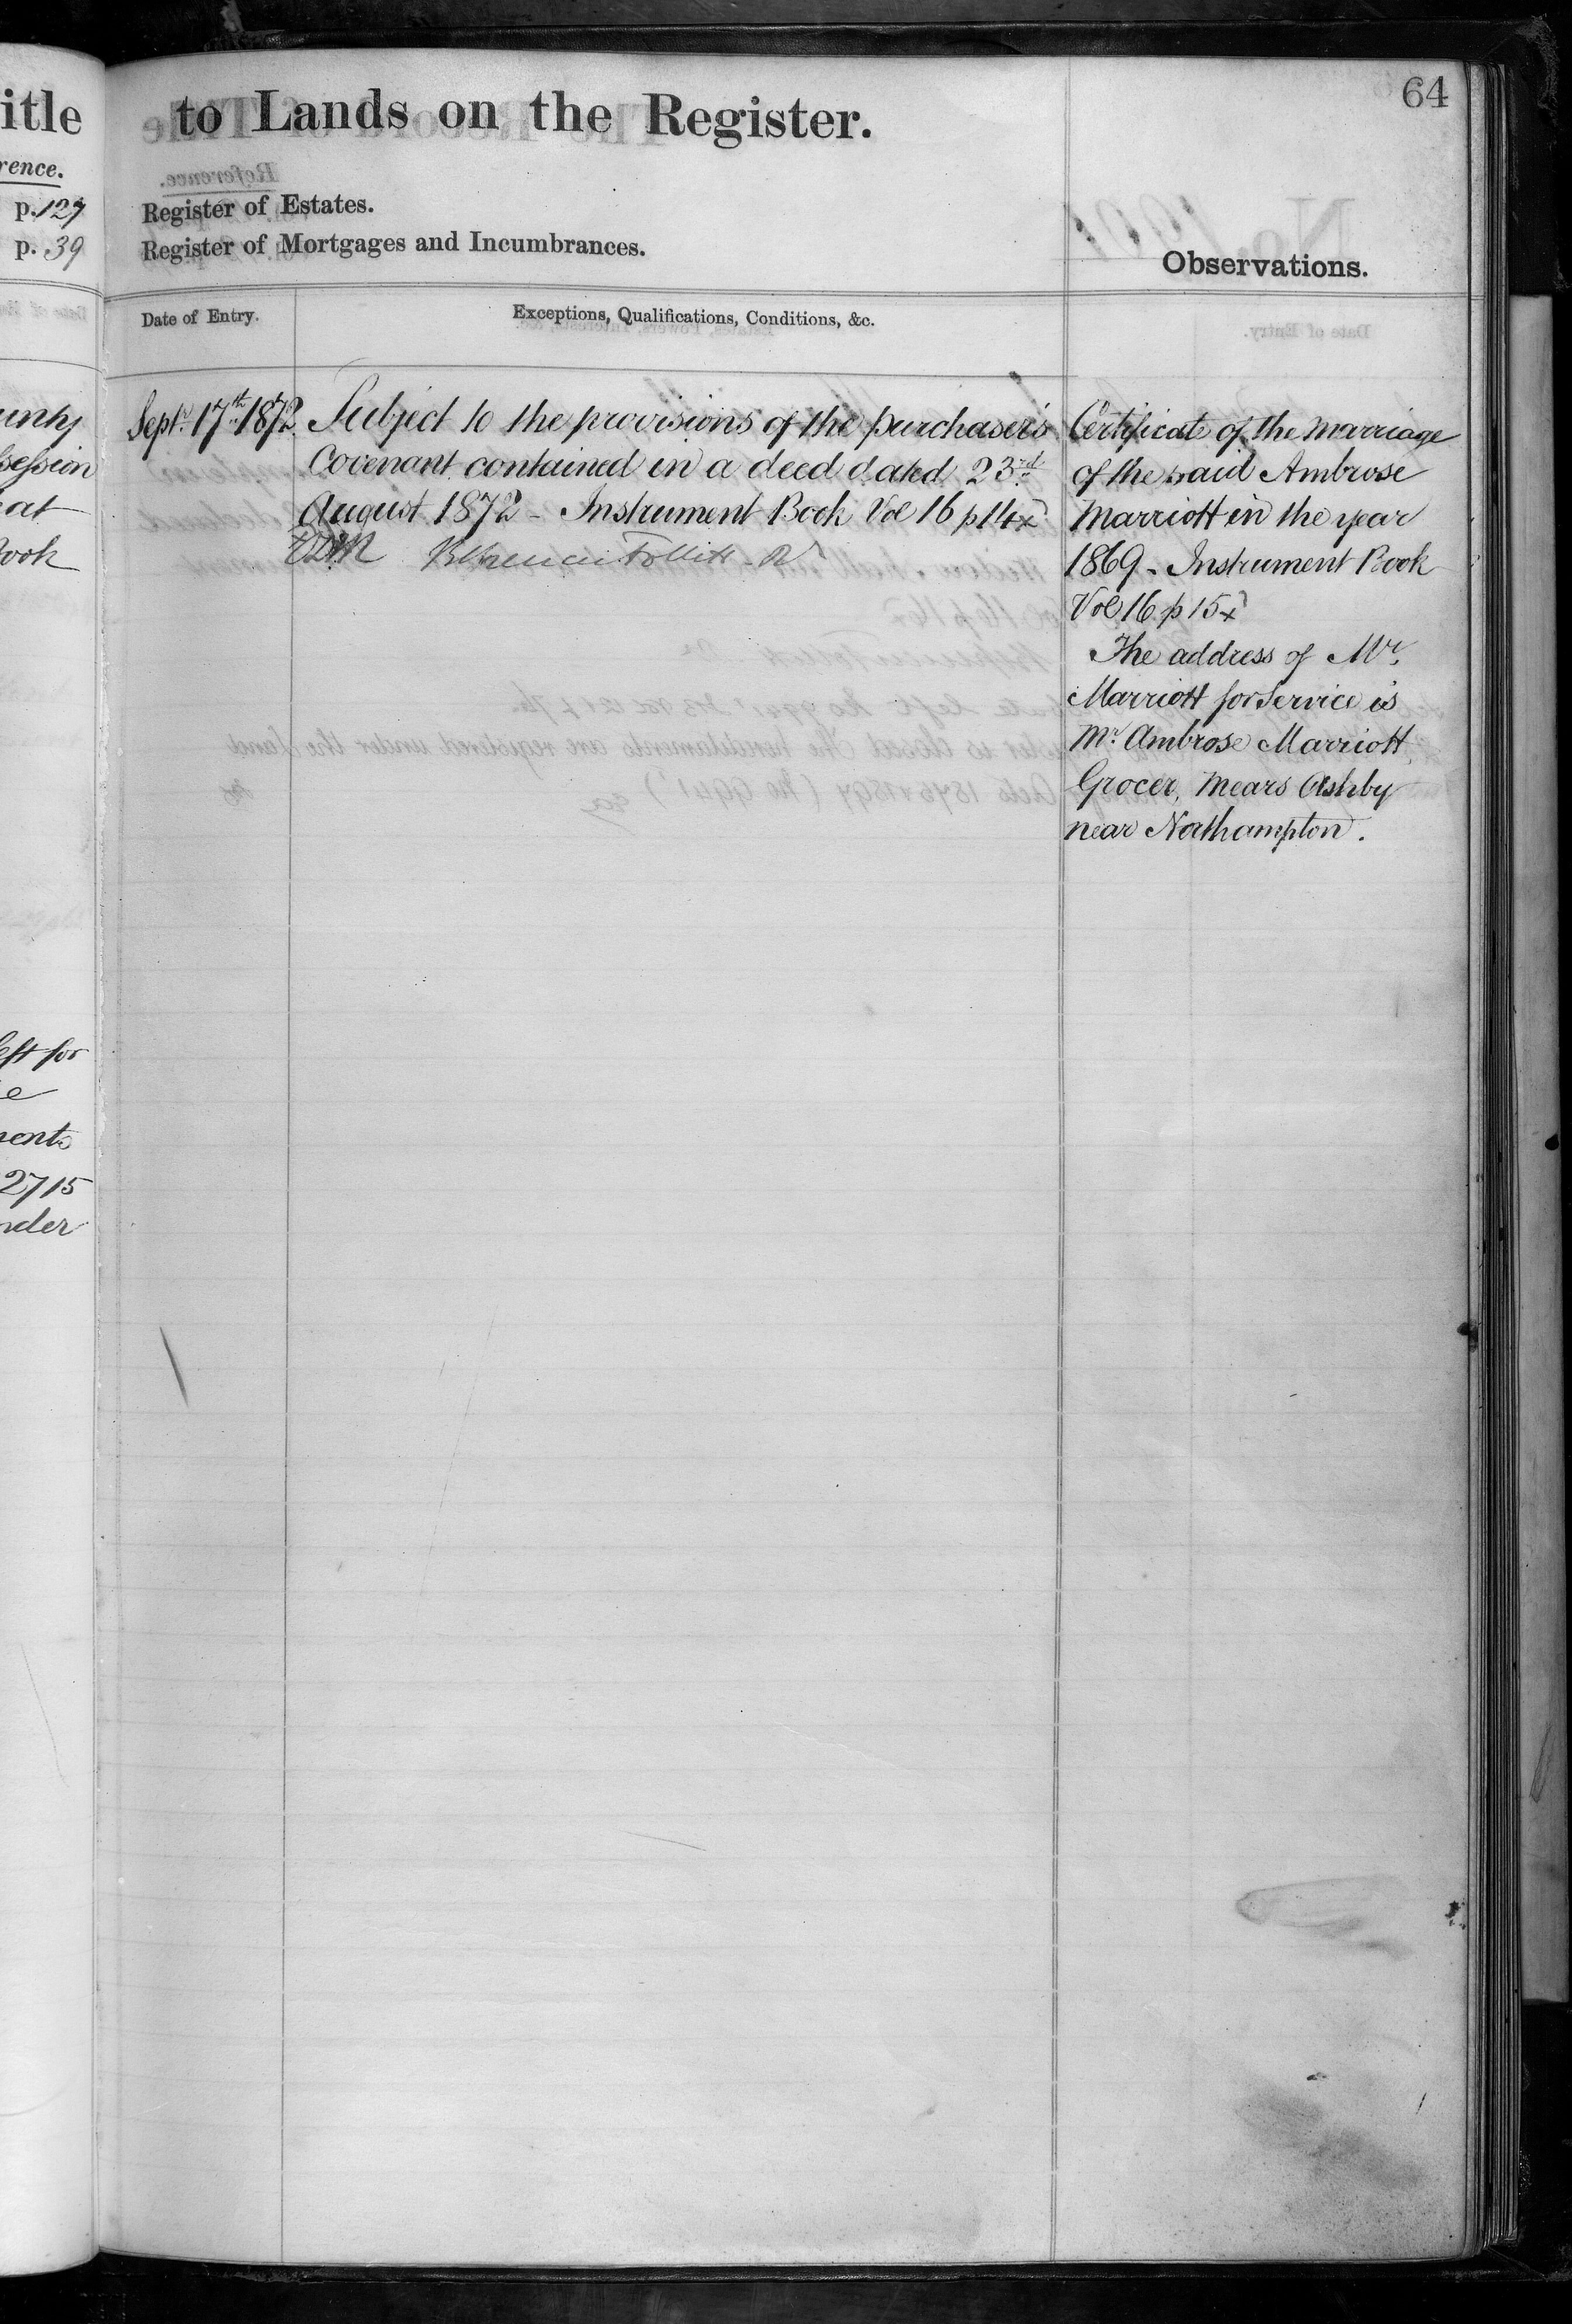 64
itle
to Lands on the Register.
rence.
p. 127
Register of Estates.
p. 39
Register of Mortgages and Incumbrances.
Observations.
Date of Entry.
Exceptions, Qualifications, Conditions, &c.
Septr. 17th 1872.
Subject to the provisions of the purchaser's
Covenant contained in a deed dated 23rd
August 1872 - Instrument Book Vol 16 p 14x
Follett - R
Certificate of the marriage
of the said Ambrose
Marriott in the year
1869 - Instrument Book
Vol 16 p 15x
The address of Mr.
Marriott for service is
Mr. Ambrose Marriott,
Grocer, Mears Ashby
near Northampton.
unty
session
at
Book
left for
e
ments
2715
nder